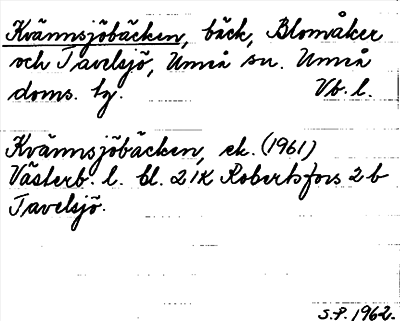 Kvännsjöbäcken, bäck, Blomåker
och Tavelsjö, Umeå sn. Umeå
doms. tg. Vb. l.
Kvännsjöbäcken, ek. (1961)
Västerb. l. bl. 21K Robertsfors 2b
Tavelsjö.
S.P. 1962.